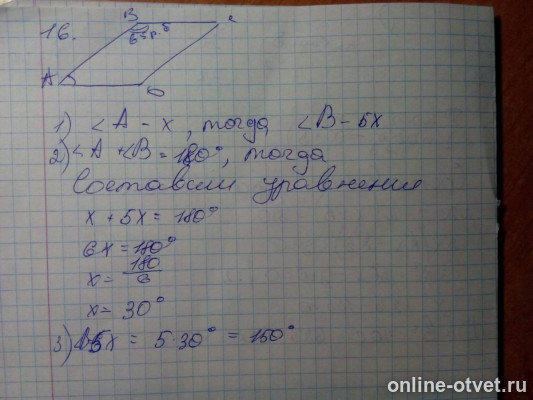 16.
B
6 в 5 р.
A
D
1) <A - x, тогда <B - 5x
2) <A + <B = 180°, тогда
Составим уравнение
x + 5x = 180°
6x = 180°
x = 180/6
x = 30°
3) 5x = 5·30° = 150°
online-otvet.ru